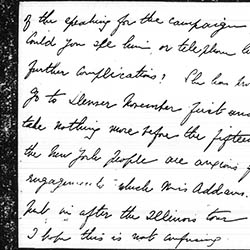 of the speaking for the campaign
Could you see him, or telephone
further complications? She has
go to Denver November first and
take nothing more before the fifteen
the New York people are anxious f
engagements which Miss Addams
put in after the Illinois tour
I hope this is not confusing